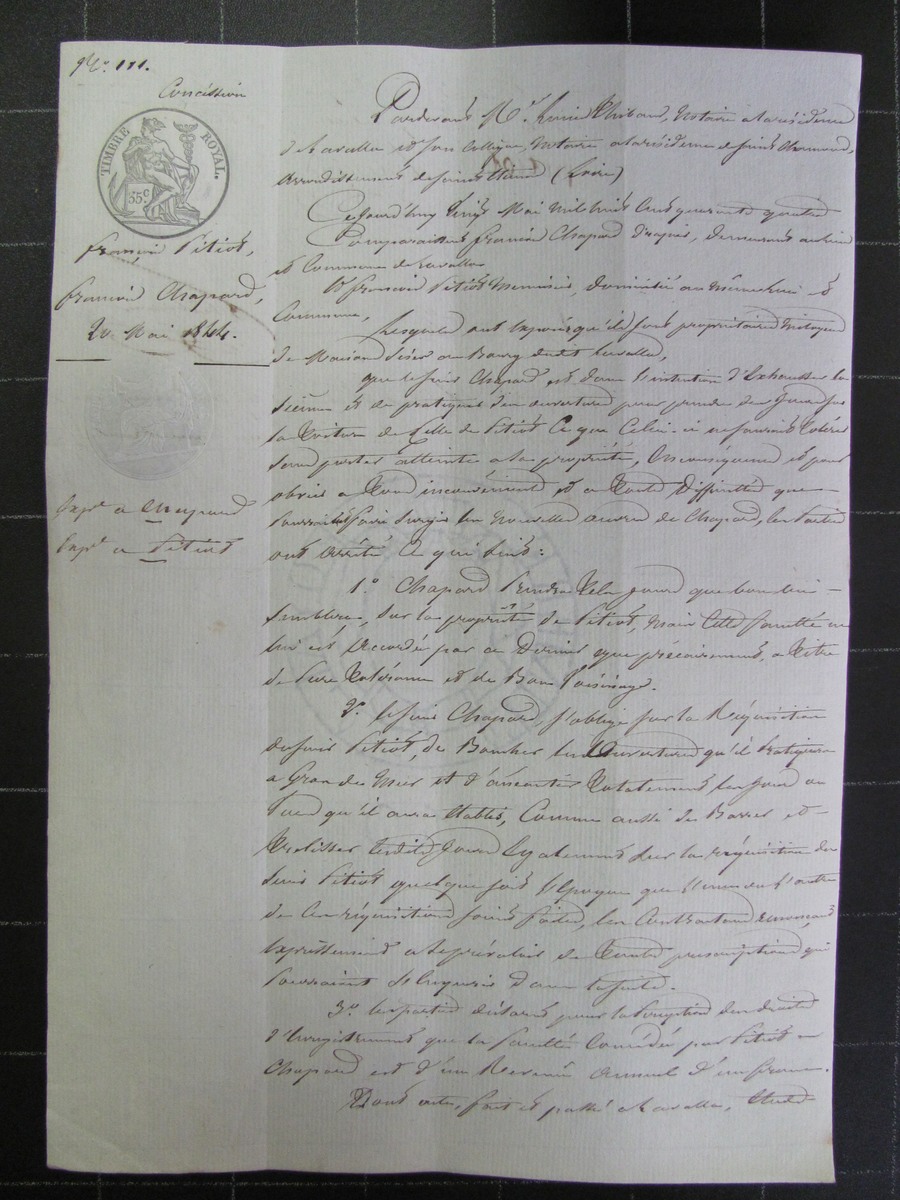 No. 111.
Concession
TIMBRE ROYAL.
55c
françois Petiot,
françois Chapard,
20 Mai 1844.
Exp.n a Chapard
Exp.n a Petiot
Pardevant Me Thibaud, Notaire a la résidence
de Lavalla et son Collègue, Notaire a la résidence de Saint Chamond,
arrondissement de Saint Etienne (Loire)
Cejourd'huy Vingt Mai mil huit cent quarante quatre
Comparaissent françois Chapard demeurant au lieu
et Commune de Lavalla
Et françois Petiot Menuisier, domicilié au même lieu et
Commune,
Lesquels ont exposé qu'ils sont propriétaires mitoyens
de Maisons sises au Bourg dudit Lavalla,
que le sieur Chapard est dans l'intention d'Exhausser la
sienne et de pratiquer des ouvertures pour prendre des Jours sur
la Toiture de Celle de Petiot Ce que Celui-ci ne saurait tolérer
sans porter atteinte a sa propriété, En conséquence et pour
obvier a tout inconvénient et a toute difficulté que
pourrait faire surgir les nouvelles œuvres de Chapard, les parties
ont arrêté Ce qui suit:
1o Chapard Prendra tels jours que bon lui
semblera, sur la propriété de Petiot, Mais Cette faculté ne
lui est accordée par ce Dernier que précairement, a titre
de Pure tolérance et de Bon Voisinage.
2o le sieur Chapard, s'oblige sur la Réquisition
du sieur Petiot, de Boucher les Ouvertures qu'il Pratiquera
a Grand Mur et d'anéantir totalement les Jours ou
vues qu'il aura Etablis, Comme aussi de Barrer et
treillisser lesdits Jours Egalement sur la réquisition du
sieur Petiot quelque soit l'Epoque que l'une ou l'autre
de Ces réquisitions soient faites, les Contractants renonçant
expressément a se prévaloir de toute prescription qui
pourraient s'Acquérir dans la suite.
3o les parties déclarent pour la Perception des droits
d'Enregistrement que la faculté Concédée par Petiot a
Chapard est d'un Revenu annuel d'un franc.
Dont acte, fait et passé a Lavalla, Etude